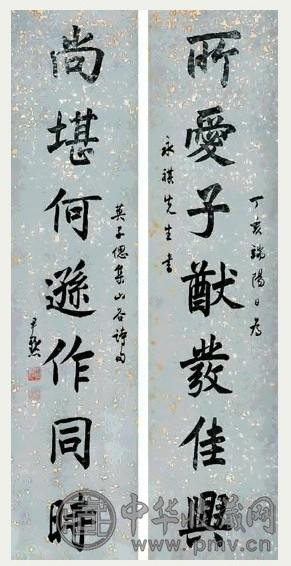 丁亥端陽日為
所愛子猷發佳興
永祺先生書
莫子偲集山谷詩句
尚堪何遜作同時
尹默
中华收藏网
www.pmv.cn